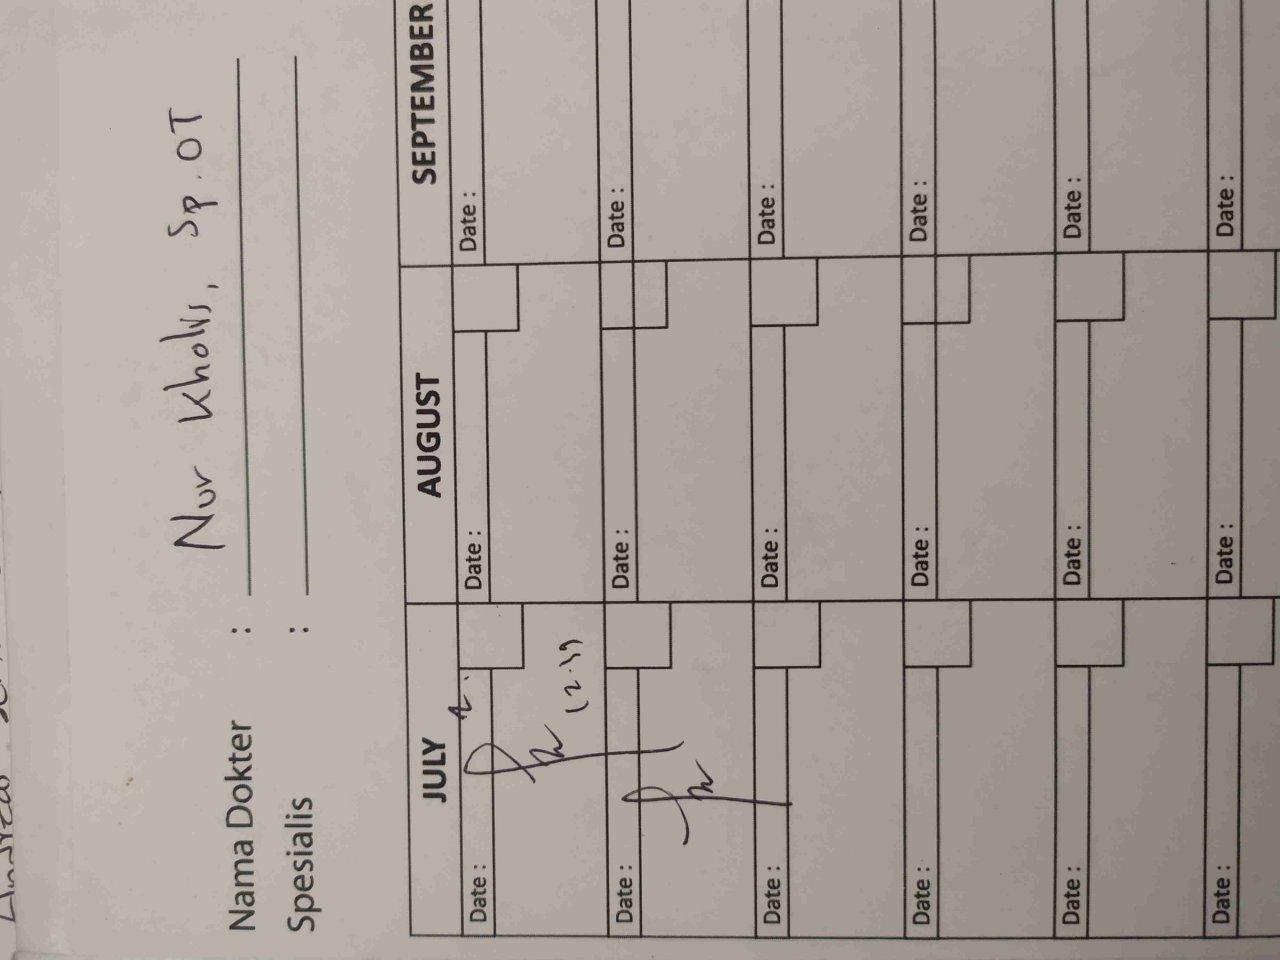 Nama Dokter : Nur Kholis, Sp. OT
Spesialis :
JULY AUGUST SEPTEMBER
Date : Date : Date :
12.39
Date : Date : Date :
Date : Date : Date :
Date : Date : Date :
Date : Date : Date :
Date : Date : Date :